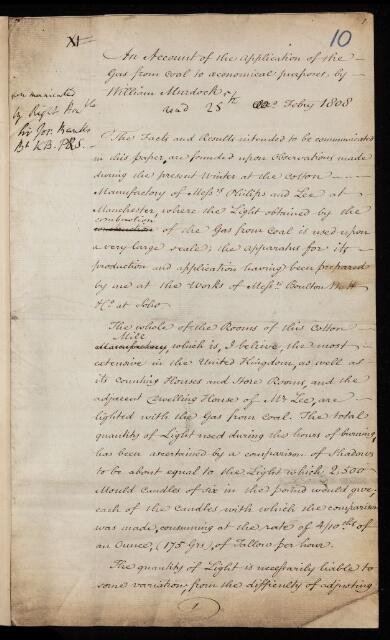 XI
10
An Account of the application of the
Gas from Coal to œconomical purposes, by
William Murdock
communicated
by Right Hon ble
Sir Jos. Banks
Bt KB. PRS
read 25th Febry 1808
The Facts and Results intended to be communicated
in this paper, are founded upon Observations made
during the present Winter at the Cotton
Manufactory of Messrs Philips and Lee at
Manchester, where the Light obtained by the
combustion
of the Gas from Coal is used upon
a very large scale; the apparatus for its
production and application having been prepared
by me at the Works of Messrs Boulton Watt
& Co at Soho
The whole of the Rooms of this Cotton
Mill
Manufactory, which is, I believe, the most
extensive in the United Kingdom, as well as
its Counting Houses and Store Rooms, and the
adjacent Dwelling House of Mr Lee, are
lighted with the Gas from Coal. The total
quantity of Light used during the hours of burning,
has been ascertained by a comparison of Shadows
to be about equal to the Light which 2,500
Mould Candles of six in the pound would give,
each of the Candles with which the comparison
was made, consuming at the rate of 4/10ths of
an Ounce, (175 Grs) of Tallow per hour.
The quantity of Light is necessarily liable to
some variation, from the difficulty of adjusting
1